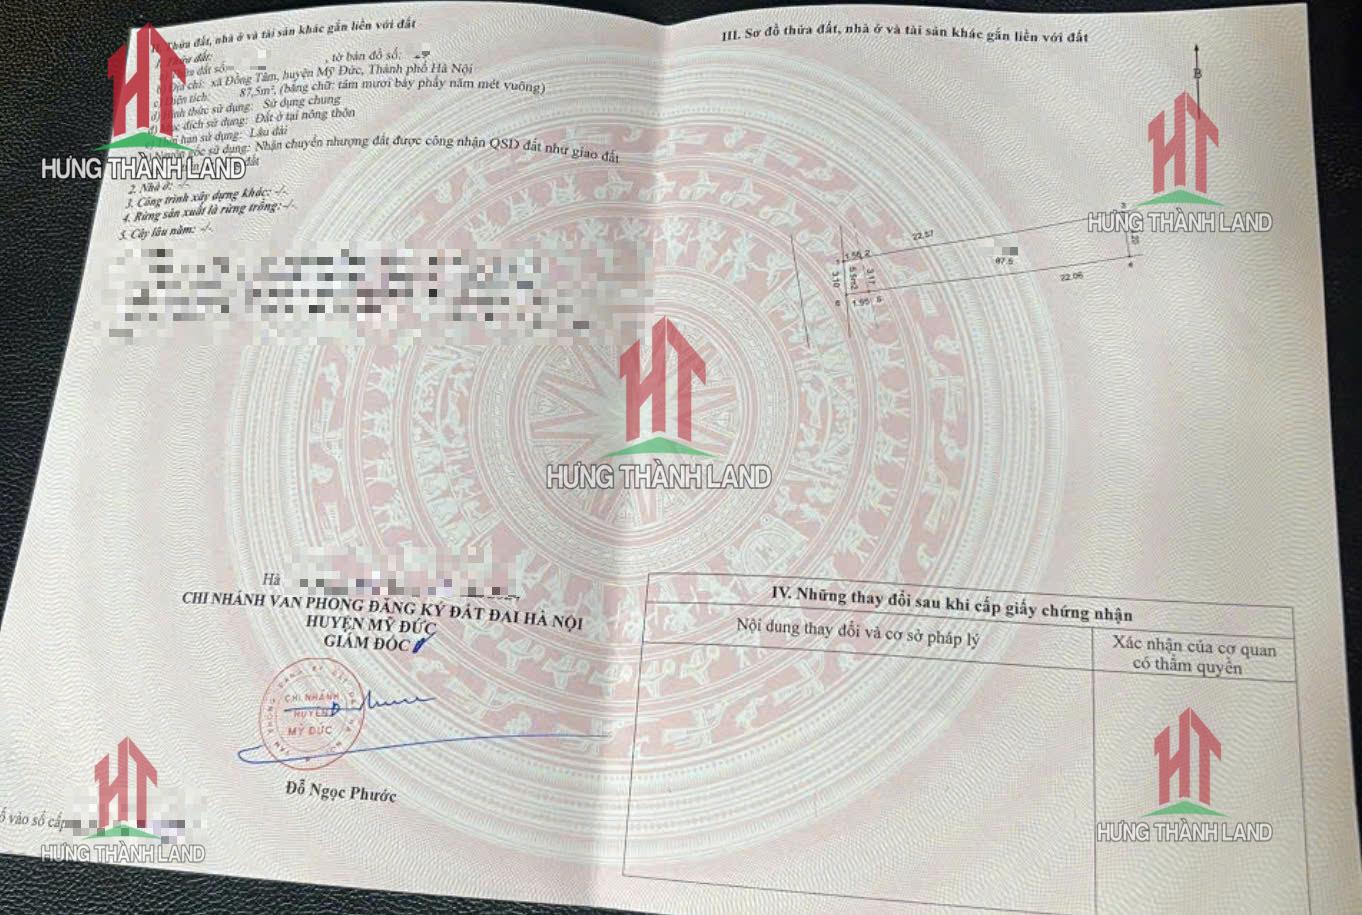 II. Thửa đất, nhà ở và tài sản khác gắn liền với đất
đất số: , tờ bản đồ số:
b) Địa chỉ: xã Đồng Tâm, huyện Mỹ Đức, Thành phố Hà Nội
c) Diện tích: 87,5m², (bằng chữ: tám mươi bảy phẩy năm mét vuông)
d) Hình thức sử dụng: Sử dụng chung
đ) Mục đích sử dụng: Đất ở tại nông thôn
e) Thời hạn sử dụng: Lâu dài
Nguồn gốc sử dụng: Nhận chuyển nhượng đất được công nhận QSD đất như giao đất
đất
2. Nhà ở: -/-
3. Công trình xây dựng khác: -/-.
4. Rừng sản xuất là rừng trồng:-/-.
5. Cây lâu năm: -/-.
Hà
CHI NHÁNH VĂN PHÒNG ĐĂNG KÝ ĐẤT ĐAI HÀ NỘI
HUYỆN MỸ ĐỨC
GIÁM ĐỐC
CHI NHÁNH
HUYỆN
MỸ ĐỨC
Đỗ Ngọc Phước
ố vào sổ cấp
III. Sơ đồ thửa đất, nhà ở và tài sản khác gắn liền với đất
B
22.57
87.5
22.06
3
4
1
1.56
2
3.10
5.9m2
3.17
6
1.95
5
IV. Những thay đổi sau khi cấp giấy chứng nhận
Nội dung thay đổi và cơ sở pháp lý
Xác nhận của cơ quan
có thẩm quyền
HƯNG THÀNH LAND
HƯNG THÀNH LAND
HƯNG THÀNH LAND
HƯNG THÀNH LAND
HƯNG THÀNH LAND